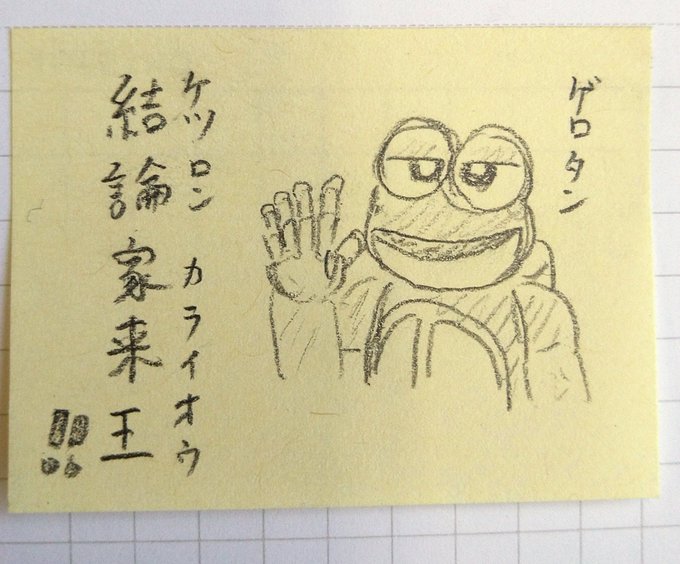 ゲロタン
ケツロン カライオウ
結論家来王!!